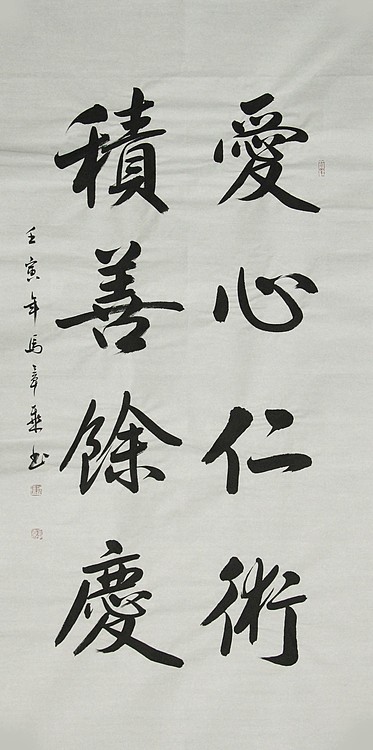 愛心仁術
積善餘慶
壬寅年馬章乘书